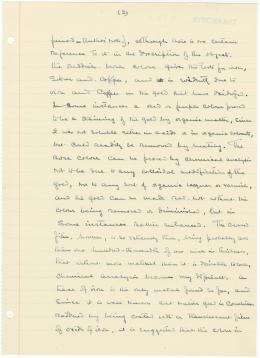 (2)
period in Author's Note], although there is no certain
reference to it in the description of the object.
The reddish-brown colour gives the test for iron,
silver and copper, and is evidently due to
iron and copper in the gold that have oxidised.
In some instances a red or purple colour proved
to be a staining of the gold by organic matter, since
it was not soluble either in acids or in organic solvents,
but could readily be removed by heating. The
rose colour can be proved by chemical analysis
not to be due to any colloidal modification of the
gold, nor to any sort of organic lacquer or varnish,
and the gold can be made red hot without the
colour being removed or diminished, but in
some instances rather enhanced. The colored
film, however, is so extremely thin, being probably no
more than one hundred thousandth of an inch in thickness,
that without more material than it is possible to use,
chemical analysis becomes very difficult. A
trace of iron is the only metal found so far, and
since it is well known that native gold is sometimes
reddened by being coated with a translucent film
of oxide of iron, it is suggested that the colour in